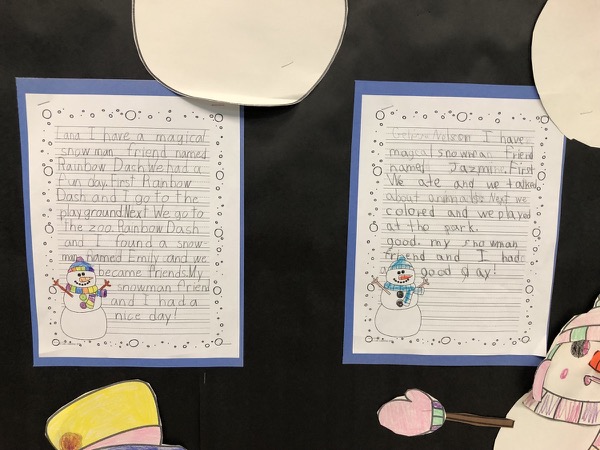 Lana I have a magical
snow man friend named
Rainbow Dash.We had a
Fun day.First Rainbow
Dash and I go to the
playground.Next We go to
the zoo.Rainbow Dash
and I found a snow-
man Named Emily and we
became friends.My
snowman friend
and I had a
nice day!
Nelson I have
magical snowman friend
name Jazmine.First
We ate and we talked
about animals.Next we
colored and we played
at the park.
good. my snowman
friend and I had
a good day!